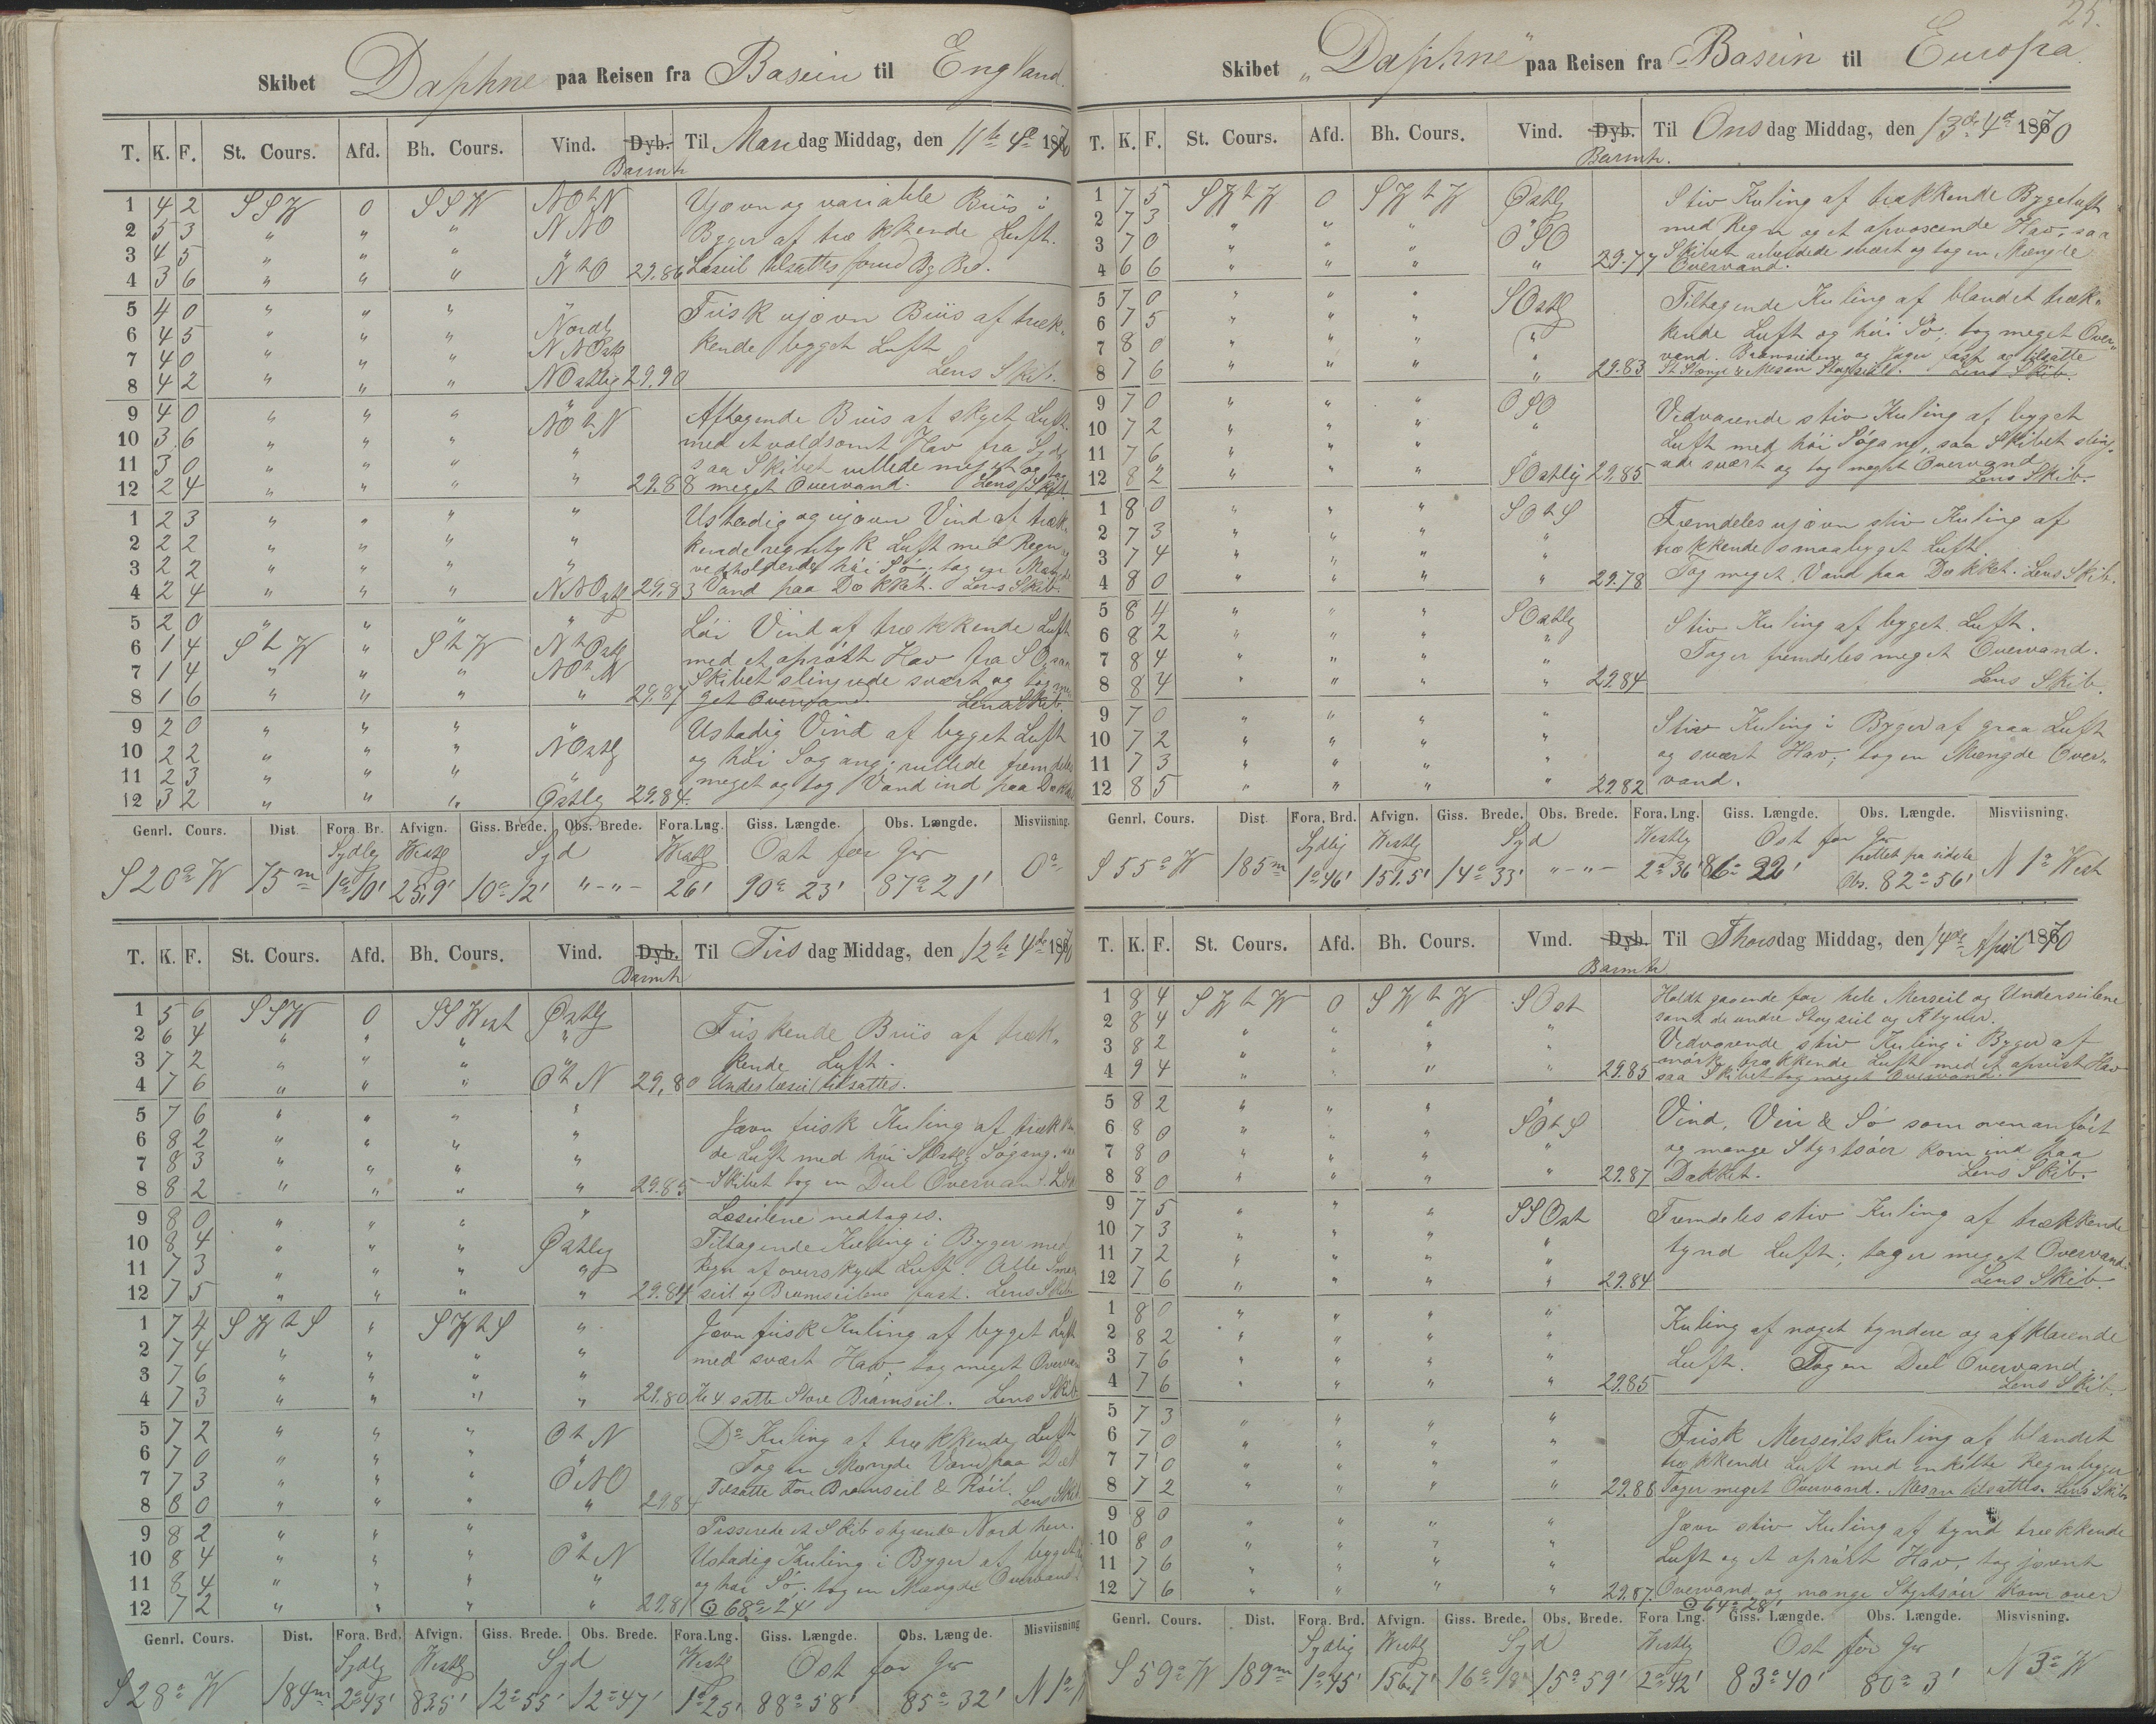 Skibet Daphne paa Reisen fra Basein til England.
T. K. F. St. Cours. Afd. Bh. Cours. Vind. Dyb. Til Mandag Middag, den 11te 4de 1870
Barmtr
1 4 2 SSW 0 SSW NOtN Ujævn og variable Briis i
2 5 3 " " " NNO Byger af trækkende Luft.
3 4 5 " " " "
4 3 6 " " " NtO 29.86 Læseil tilsattes
5 4 0 " " " " Frisk ujævn Briis af træk-
6 4 5 " " " Nordl kende bygget Luft
7 4 0 " " " NNOstl
8 4 2 " " " NOstlig 29.90 Lens Skib.
9 4 0 " " " " Aftagende Briis af skyet Luft
10 3 6 " " " NOtN med et voldsomt Hav fra Syd
11 3 0 " " " " saa Skibet rullede meget og tog
12 2 4 " " " " 29.88 meget Overvand. Lens Skib.
1 2 3 " " " " Ustadig og ujævn Vind af træk-
2 2 2 " " " " kende regntyk Luft med Regn
3 2 2 " " " " vedholdende høi Sø; tog en Mængde
4 2 4 " " " NNOstl 29.83 Vand paa Dækket. Lens Skib.
5 2 0 " " " " Løi Vind af trækkende Luft
6 1 4 StW " StW NtOstl med et oprørt Hav fra SO, saa
7 1 4 " " " NOtN Skibet slingrede svært og tog me-
8 1 6 " " " " 29.87 get Overvand. Lens Skib.
9 2 0 " " " " Ustadig Vind af bygget Luft
10 2 2 " " " NOstlg og høi Søgang; rullede fremdeles
11 2 3 " " " " meget og tog Vand ind paa Dækket
12 3 2 " " " Østlg 29.84.
Genrl. Cours. Dist. Fora. Br. Afvign. Giss. Brede. Obs. Brede. Fora.Lng. Giss. Længde. Obs. Længde. Misviisning.
Sydlg Westl Syd Westl Ost for Gr
S 20° W 75m 1°10' 25,9' 10°12' "-"- 26' 90° 23' 87° 21' 0°
T. K. F. St. Cours. Afd. Bh. Cours. Vind. Dyb. Til Tirsdag Middag, den 12te 4de 1870
Barmtr
1 5 6 SSW 0 SSWest Østlg Friskende Briis af træk-
2 6 4 " " " " kende Luft.
3 7 2 " " "
4 7 6 " " " OtN 29,80 Underlæseil tilsattes.
5 7 6 " " " " Jævn frisk Kuling af trækken
6 8 2 " " " " de Luft med høi SOstlg Søgang. saa
7 8 3 " " " "
8 8 2 " " " " 29.85 Skibet tog en Deel Overvand.
9 8 0 " " " " Læseilene nedtages.
10 8 4 " " " Østlg Tiltagende Kuling i Byger med
11 7 3 " " " " Regn af overskyet Luft. Alle
12 7 5 " " " " 29.84 seil og Bramseilene fast. Lens Skib
1 7 4 SWtS " SWtS " Jævn frisk Kuling af bygget Luft
2 7 4 " " " " med svært Hav; tog meget Overvan
3 7 6 " " " "
4 7 3 " " " " 29.80 Kl 4 satte Store Bramseil. Lens Skib
5 7 2 " " " OtN D° Kuling af trækkende Luft
6 7 0 " " " " Tog en Mængde Vand paa Dæk
7 7 3 " " " ONO Tilsatte For Bramseil & Røil. Lens Skib
8 8 0 " " " " 29.84
9 8 2 " " " " Passerede et Skib styrende Nord hen.
10 8 4 " " " OtN Ustadig Kuling i Byger af bygget
11 8 4 " " " " og høi Sø; tog en Mængde Overvand
12 7 2 " " " " 29.81 68° 24'
Genrl. Cours. Dist. Fora. Brd. Afvign. Giss. Brede. Obs. Brede. Fora.Lng. Giss. Længde. Obs. Længde. Misviisning
Sydlg Westlg Syd Westl Ost for Gr
S 28° W 184m 2°43' 83.5' 12°55' 12°47' 1°25' 88°58' 85° 32' N 1° W
25.
Skibet "Daphne" paa Reisen fra Basein til Europa.
T. K. F. St. Cours. Afd. Bh. Cours. Vind. Dyb. Til Onsdag Middag, den 13de 4de 1870
Barmtr.
1 7 5 SWtW 0 SWtW Østlg Stiv Kuling af trækkende Bygeluft
2 7 3 " " " " med Regn og et opvoxende Hav, saa
3 7 0 " " " OSO Skibet arbeidede svært og tog en Mængde
4 6 6 " " " " 29.77 Overvand.
5 7 0 " " " SOstlg Tiltagende Kuling af blandet træk-
6 7 5 " " " " kende Luft og høi Sø; tog meget Over-
7 8 0 " " " vand. Bramseilene og Jager fast og tilsatte
8 7 6 " " " " 29.83 St Stænge & Mesan Stagseil. Lens Skib.
9 7 0 " " " OSO Vedvarende stiv Kuling af bygget
10 7 2 " " " " Luft med høi Søgang, saa Skibet sling-
11 7 6 " " " rede svært og tog meget Overvand
12 8 2 " " " SOstlig 29.85 Lens Skib.
1 8 0 " " " SOtS Fremdeles ujævn stiv Kuling af
2 7 3 " " " " trækkende smaabygget Luft.
3 7 4 " " " " Tog meget Vand paa Dækket. Lens Skib.
4 8 0 " " " " 29.78
5 8 4 " " " SOstlg Stiv Kuling af bygget Luft.
6 8 2 " " " " Tager fremdeles meget Overvand.
7 8 4 " " " "
8 8 4 " " " " 29.84 Lens Skib.
9 7 0 " " " " Stiv Kuling i Byger af graa Luft
10 7 2 " " " " og svært Hav; tog en Mængde Over-
11 7 3 " " " "
12 8 5 " " " " 29.82 vand.
Genrl. Cours. Dist. Fora. Brd. Afvign. Giss. Brede. Obs. Brede. Fora. Lng. Giss. Længde. Obs. Længde. Misviisning.
Sydlig Westlg Syd Westlg Ost for Gr
rettet fra sidste
S 55° W 185m 1°46' 151.5' 14°33' "-"- 2°36' 86° 22' Obs. 82°56' N 1° West
T. K. F. St. Cours. Afd. Bh. Cours. Vind. Dyb. Til Thorsdag Middag, den 14de April 1870
Barmtr
1 8 4 SWtW 0 SWtW SOst Holdt gaaende for hele Merseil og Underseilene
2 8 4 " " " " samt de andre Stagseil og Klyver.
3 8 2 " " " " Vedvarende stiv Kuling i Byger af
4 9 4 " " " " 29.85 mørk trækkende Luft med et oprørt Hav
saa Skibet tog meget Overvand.
5 8 2 " " " " Vind, Veir & Sø som ovenanført
6 8 0 " " " SOtS og mange Styrtsøer kom ind paa
7 8 0 " " " "
8 8 0 " " " " 29.87 Dækket. Lens Skib.
9 7 5 " " " SSOst Fremdeles stiv Kuling af trækkende
10 7 3 " " " " tynd Luft; tager meget Overvand.
11 7 2 " " " "
12 7 6 " " " " 29.84 Lens Skib.
1 8 0 " " " " Kuling af noget tyndere og afklarende
2 8 2 " " " " Luft. Tog en Deel Overvand.
3 7 6 " " " "
4 7 6 " " " " 29.85 Lens Skib.
5 7 3 " " " " Frisk Merseilskuling af blandet
6 7 0 " " " " trækkende Luft med enkelte Regnbyger
7 7 0 " " " "
8 7 2 " " " " 29.86 Tager meget Overvand. Mesan tilsattes. Lens Skib
9 8 0 " " " " Jævn stiv Kuling af tynd trækkende
10 8 0 " " " " Luft og et oprørt Hav, tog jævnt
11 7 6 " " " "
12 7 6 " " " " 29.87 Overvand og mange Styrtsøer kom over
64° 28'
Genrl. Cours. Dist. Fora. Brd. Afvign. Giss. Brede. Obs. Brede. Fora Lng. Giss. Længde. Obs. Længde. Misvisning.
Sydlig Westlg Syd Westlg Ost for Gr
S 59° W 189m 1°45' 156.7' 16°18' 15°59' 2°42' 83°40' 80° 3' N 3° W